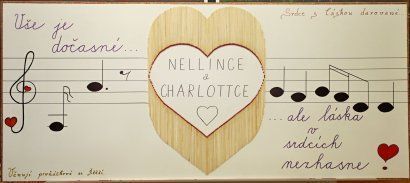 Vše je
dočasné...
Srdce s láskou darované
NELLINCE
a
CHARLOTTCE
...ale láska
v
srdcích
nezhasne
Věnují prarodičové